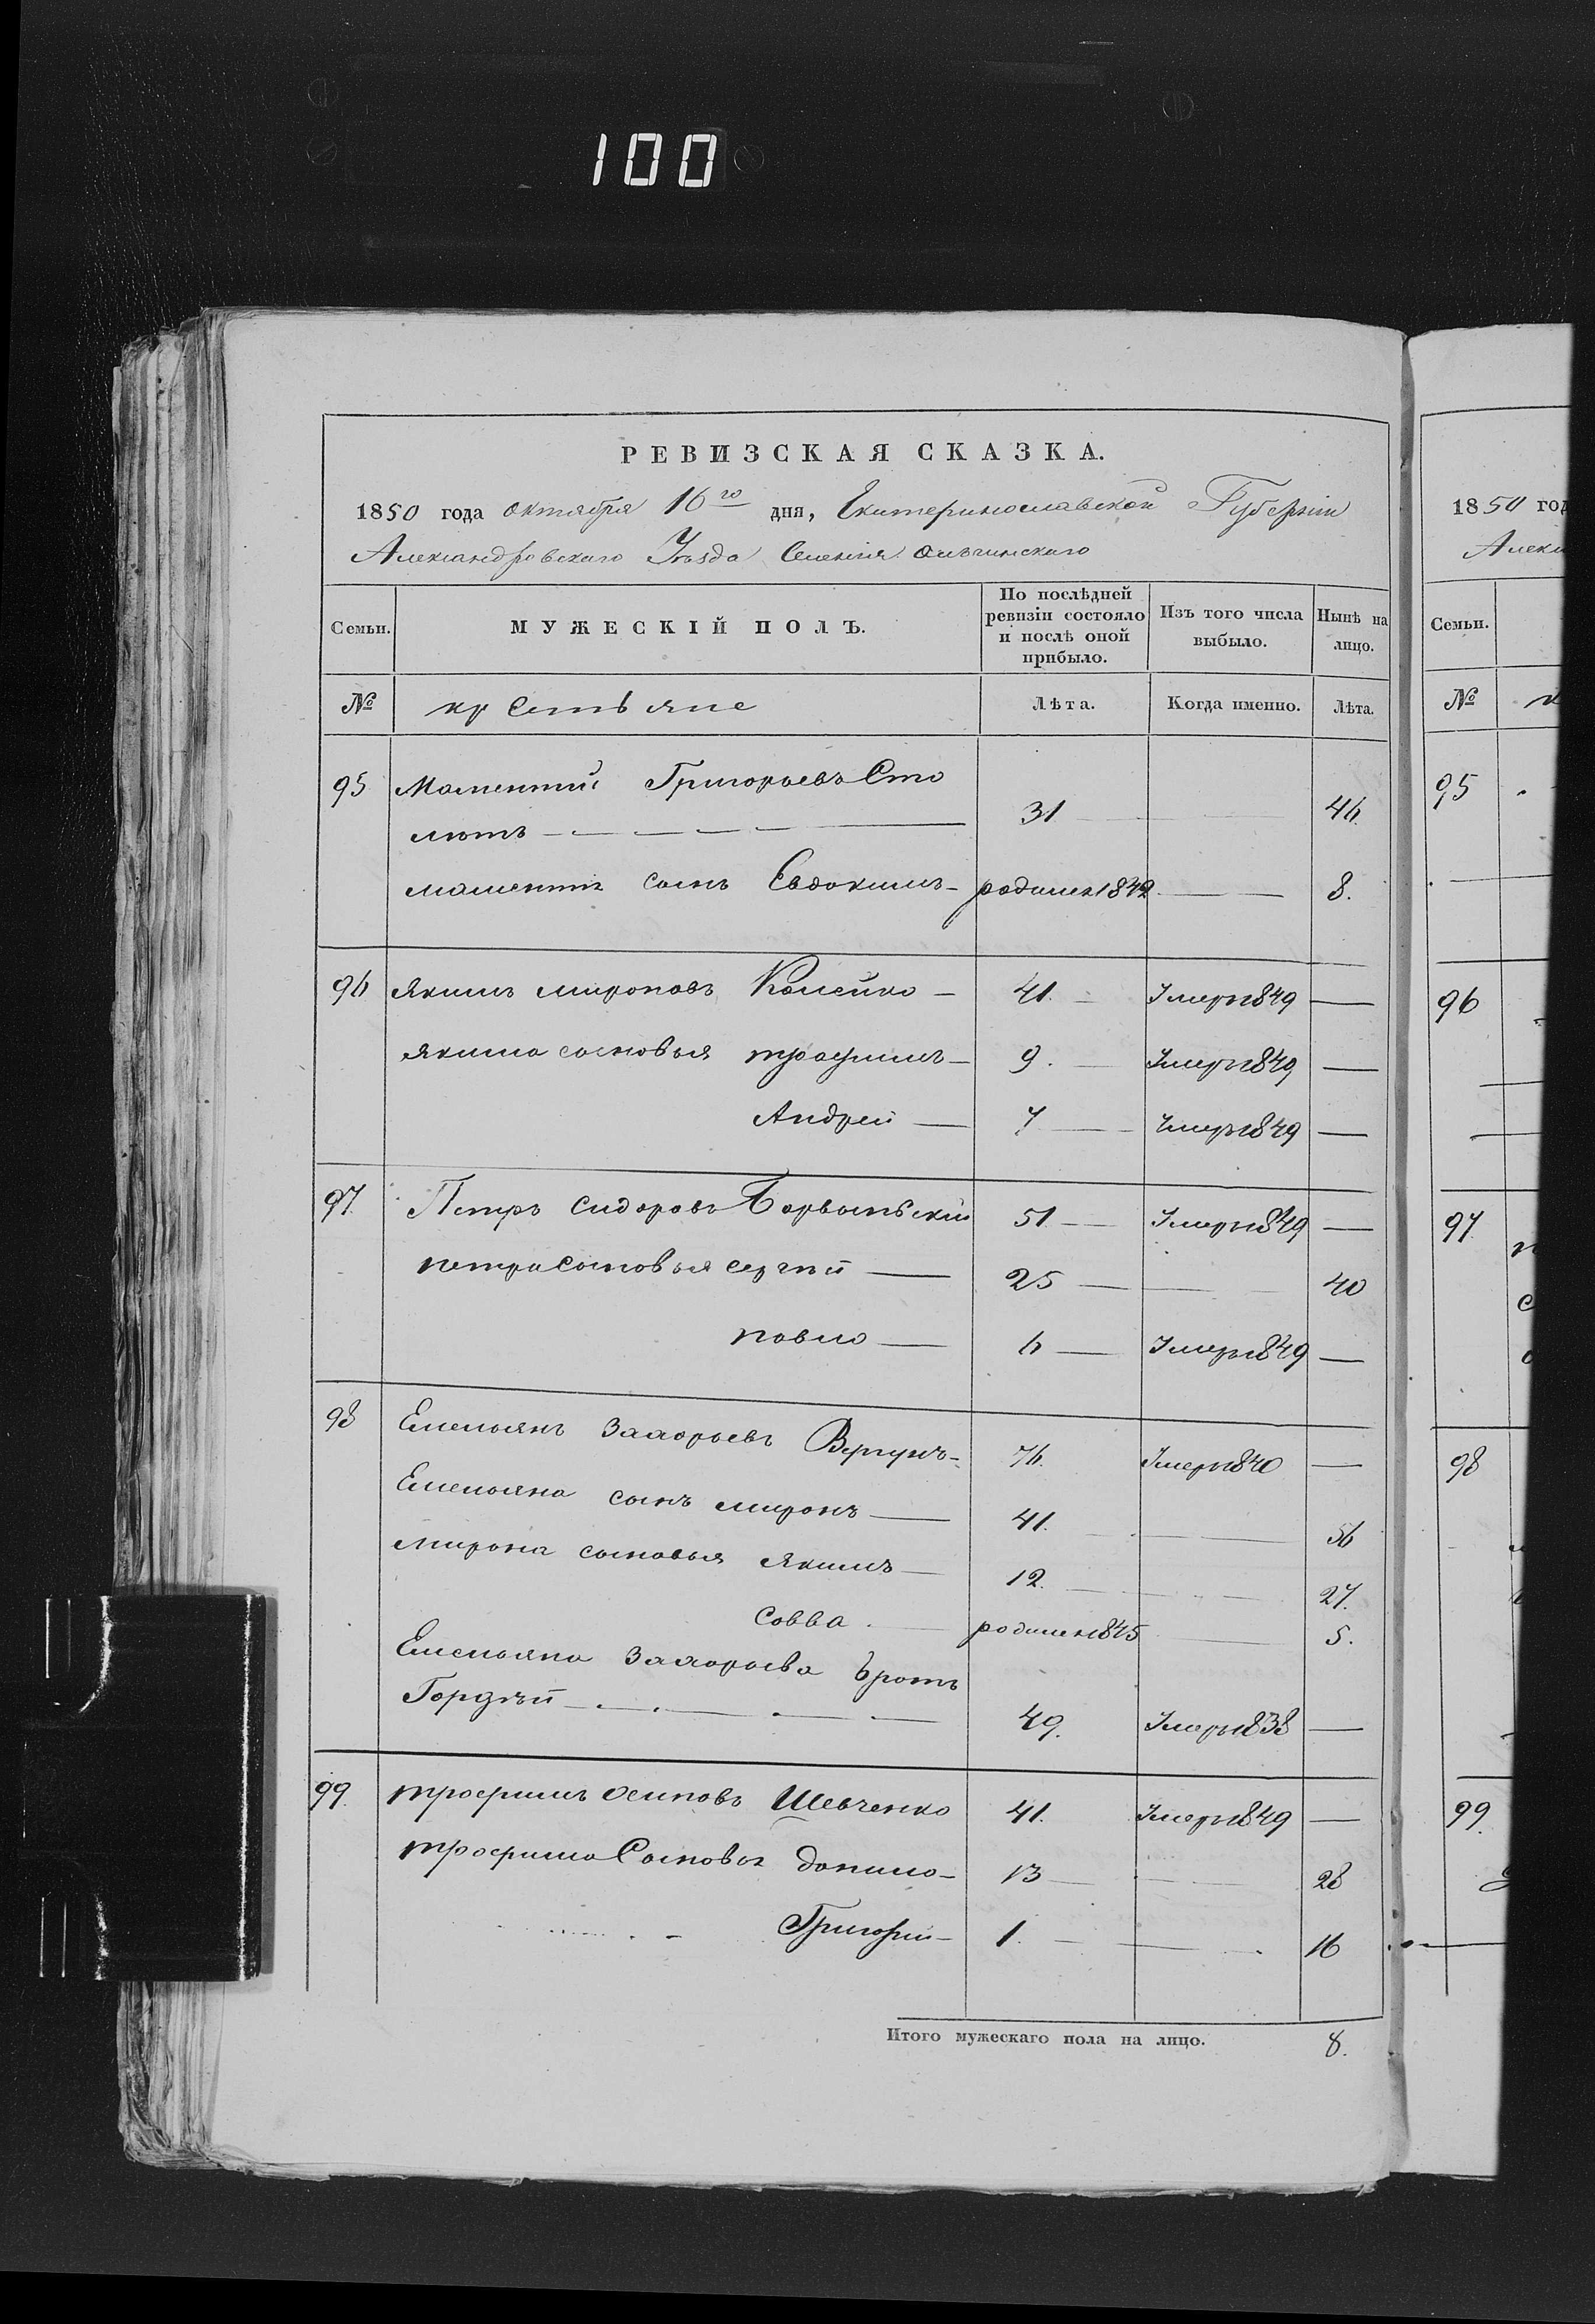 100
РЕВИЗСКАЯ СКАЗКА.
1850 года октября 16го дня, Екатеринославской Губерніи
Александровскаго Уѣзда Селенія
Семьи.
МУЖЕСКІЙ ПОЛЪ.
По послѣдней ревизіи состояло и послѣ оной прибыло.
Изъ того числа выбыло.
Нынѣ на лицо.
№ крестьяне Лѣта. Когда именно. Лѣта.
95 Маментій Григорьевъ Сто
лютъ 31 46
маментія сынъ Евдокимъ родился 1842 8.
96 Якимъ мироновъ 41. Умеръ 1849
якима сыновья трофимъ 9. Умеръ 1849
Андрей 7 Умеръ 1849
97 Петръ сидоровъ 51 Умеръ 1849
петра сыновья сергѣй 25 40
павло 6 Умеръ 1849
98 Емельянъ Захарьевъ Вергунъ 76. Умеръ 1840
Емельяна сынъ миронъ 41. 56
мирона сыновья якимъ 12. 27.
Савва родился 1845 5.
Емельяна Захарьева братъ
Гордѣй 49. Умеръ 1838
99 трофимъ осиповъ Шевченко 41. Умеръ 1849
трофима Сыновья данило 13 28
Григорій 1. 16
Итого мужескаго пола на лицо. 8.
1850 год
Алекс
Семьи.
№
95
96
97
98
99